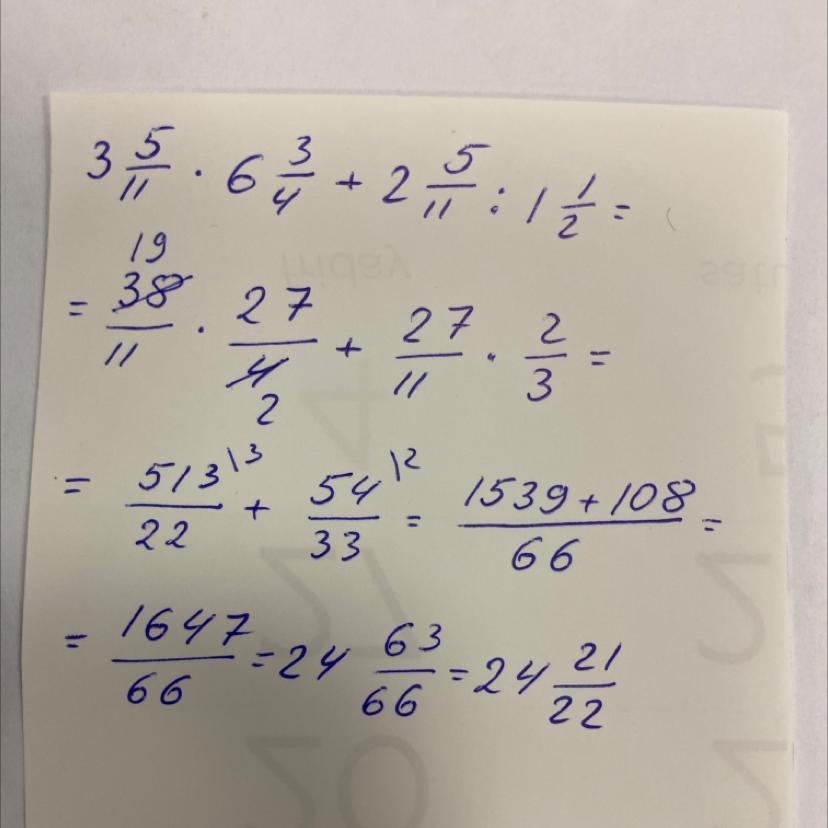 3 5/11 · 6 3/4 + 2 5/11 : 1 1/2 =
= 38/11 · 27/4 + 27/11 · 2/3 =
19
2
= 513/22 \3 + 54/33 \2 = (1539 + 108)/66 =
= 1647/66 = 24 63/66 = 24 21/22
friday